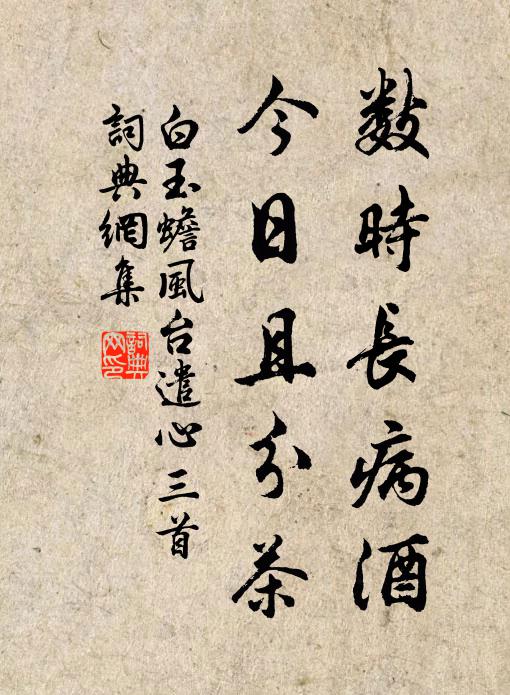 數時長病酒
今日且分茶
白玉蟾風台遣心三首
詞典網集
詞典網印